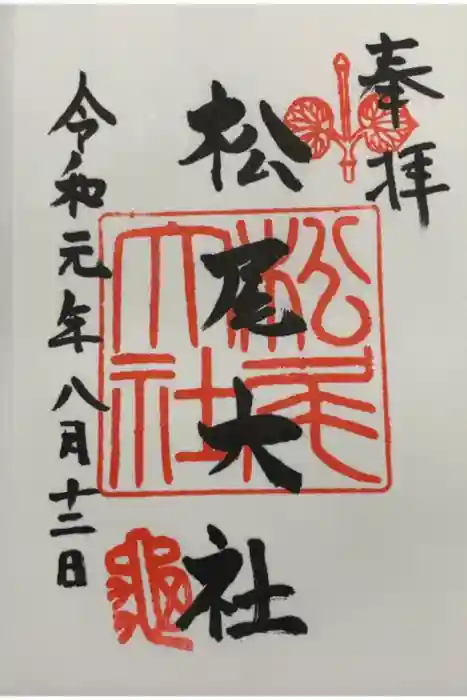 奉拝
松尾大社
松尾大社
龜
令和元年八月十二日